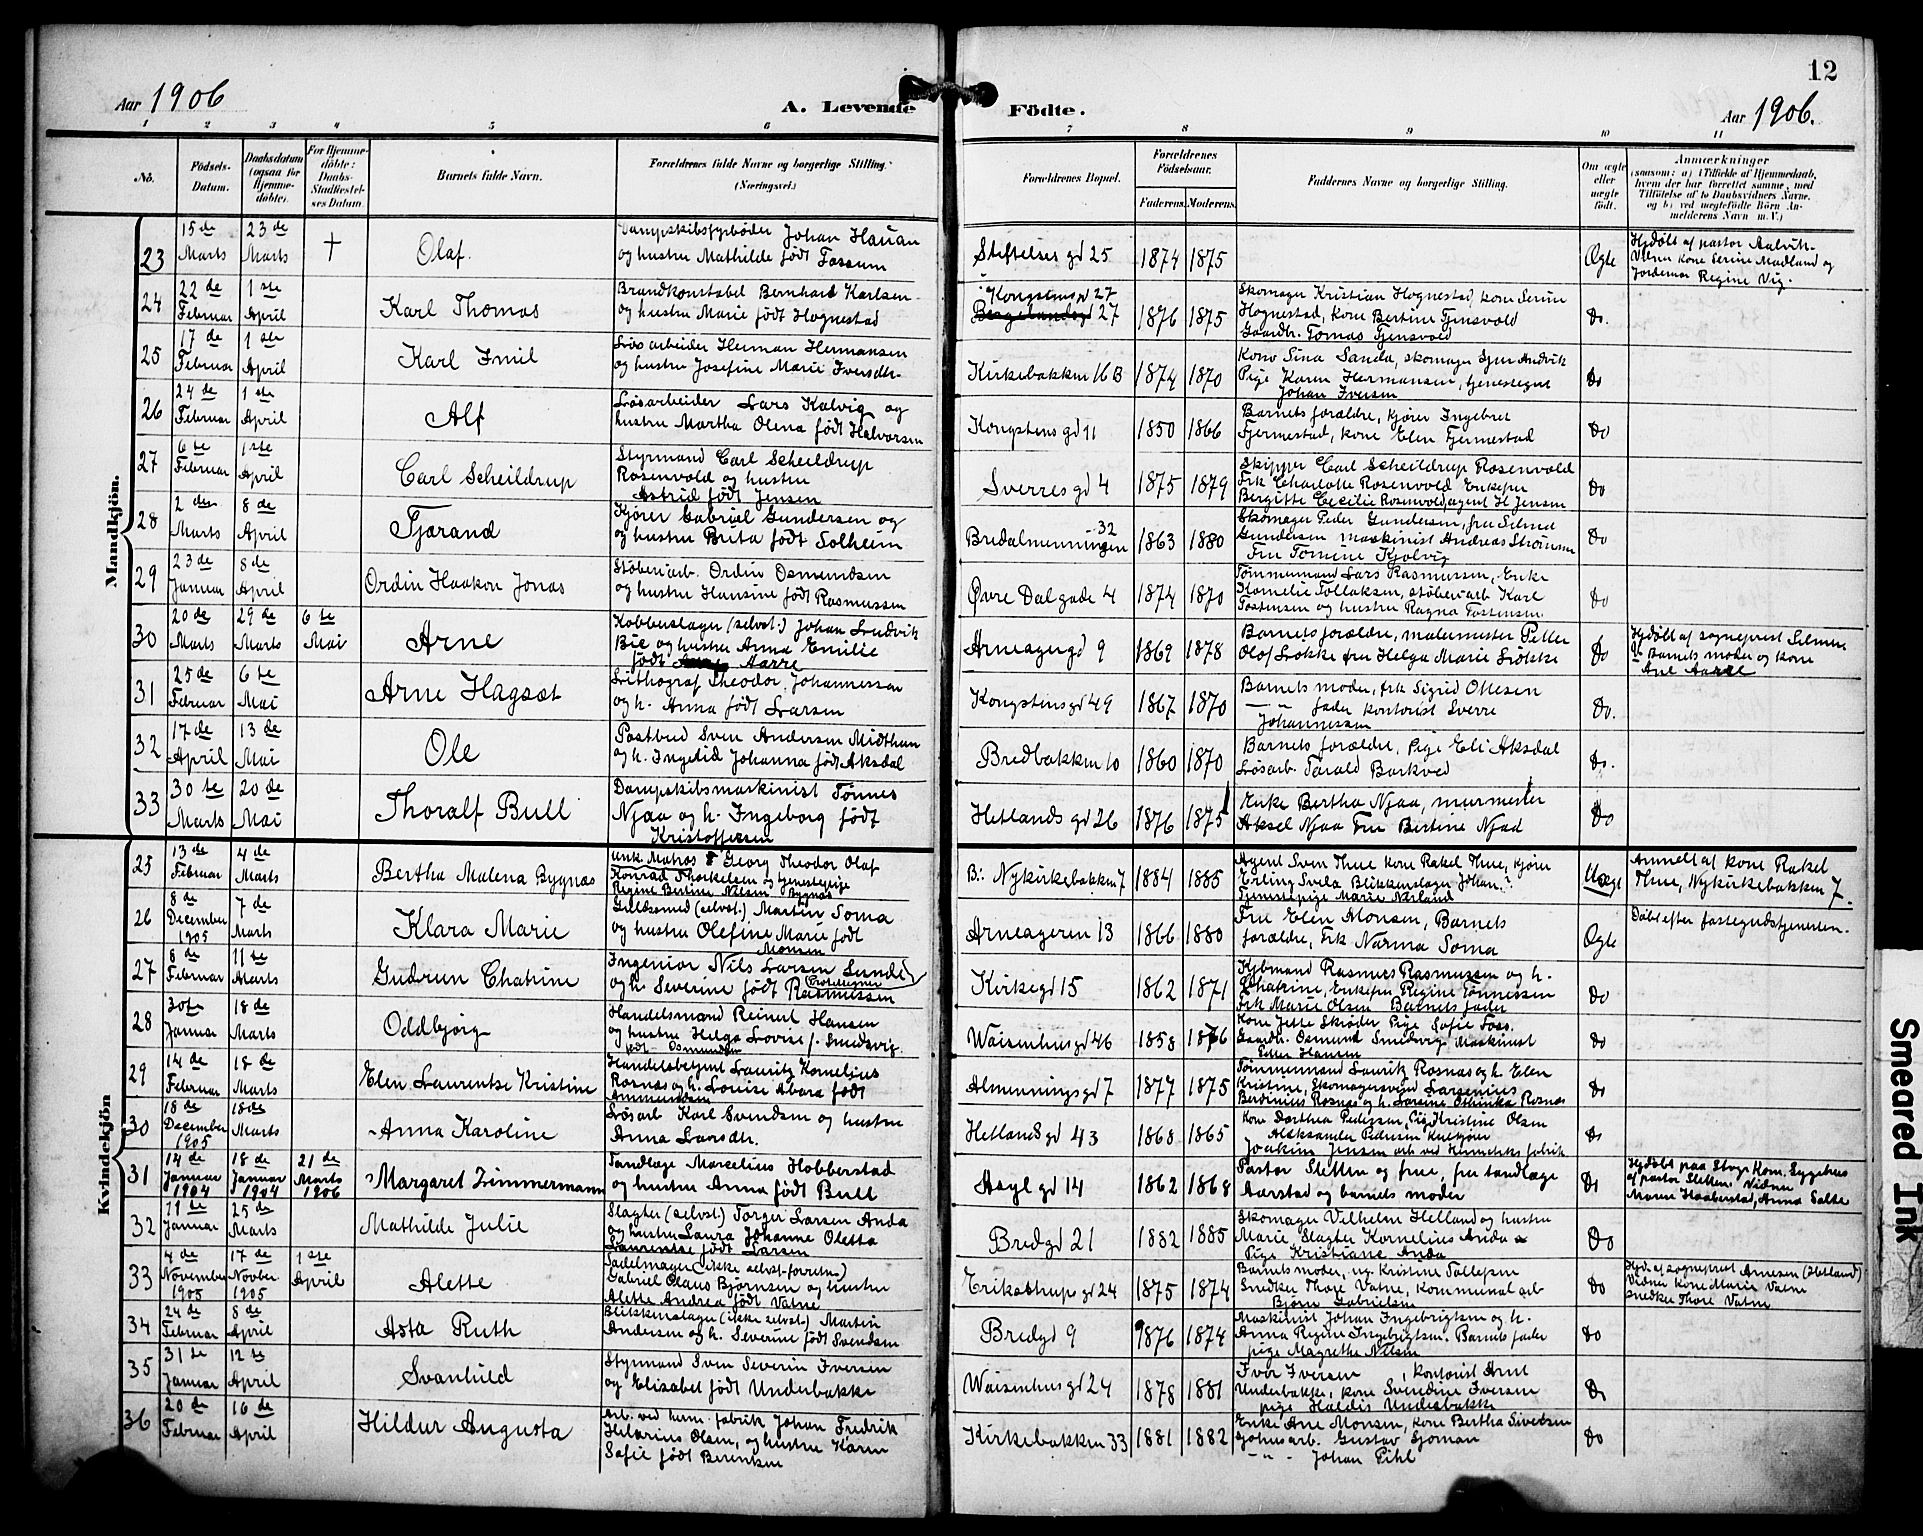 12
Aar 1906
A. Levende Födte.
Aar 1906.
1 2 3 4 5 6 7 8 9 10 11
No.
Födsels-
Datum.
Daabsdatum
(ogsaa for
Hjemme-
döbte).
For Hjemme-
döbte:
Daabs-
Stadfæstel-
ses Datum
Barnets fulde Navn.
Forældrenes fulde Navne og borgerlige Stilling.
(Næringsvei.)
Forældrenes Bopæl.
Forældrenes
Födselsaar.
Faderens. Moderens.
Faddernes Navne og borgerlige Stilling.
Om ægte
eller
uægte
födt.
Anmærkninger
(saasom: a) i Tilfælde af Hjemmedaab,
hvem der har forrettet samme, med
Tilföielse af to Daabsvidners Navne,
og b) ved uægtefödte Börn An-
melderens Navn m. V.)
Mandkjön.
23
15de
Marts
23de
Marts
†
Olaf.
Dampskibsfyrbøder Johan Hauan
og hustru Mathilde født Fossum
Stiftelses gd 25
1874 1875
Ægte
Hjdøbt af pastor Aalvik
Vidner kone Serine Madland og
Jordemor Regine Vig.
24
22de
Februar
1ste
April
Karl Thomas
Brandkonstabel Bernhard Karlsen
og hustru Marie født Hognestad
Kongstensgd 27
27
1876 1875
Skomager Kristian Hognestad, kone Serine
Hognestad, kone Bertine Tjensvold
Gaardbr. Tomas Tjensvold
Do.
25
17de
Februar
1ste
April
Karl Emil
Løsarbeider Herman Hermansen
og hustru Josefine Marie Iversdtr.
Kirkebakken 16B
1874 1870
Kone Sina Sanda, skomager Andvik
Pige Karen Hermansen, tjenestegut
Johan Iversen
Do
26
24de
Februar
1ste
April
Alf
Løsarbeider Lars Kalvig og
hustru Martha Olena født Halvorsen
Kongstens gd 11
1850 1866
Barnets forældre, kjører Ingebret
Tjermestad, kone Elen Tjermestad
Do
27
6te
Februar
1ste
April
Carl Scheildrup
Styrmand Carl Scheildrup
Rosenvold og hustru
Astrid født Jensen
Sverres gd 4
1875 1879
Skipper Carl Scheildrup Rosenvold
Frk Charlotte Rosenvold, Enkefru
Bergitte Cecilie Rosenvold, agent H Jensen
Do
28
2den
Marts
8de
April
Tjærand
Kjører Gabriel Gundersen og
og hustru Brita født Solheim
Bredalmenningen 32
1863 1880
Skomager Peder Gundersen, fru Selma
Gundersen maskinist Andreas
Fru Tomine Kjølvig
Do
29
23de
Januar
8de
April
Ordin Haakon Jonas
Støberiarb. Ordin Osmundsen
og hustru Hansine født Rasmussen
Øvre Dalgade 4
1874 1870
Tømmermand Lars Rasmussen, Enke
Kornelie Tollaksen, støberiarb Karl
Tostensen og hustru Ragna Tostensen
Do
30
20de
Marts
29de
Marts
6te
Mai
Arne
Kobberslager (selvst.) Johan Ludvik
Bie og hustru Anna Emilie
født Aarre
Arneagergd 9
1869 1878
Barnets forældre, malermester Petter
Olaf Løkke fru Helga Marie Løkke
Do
Hjdøbt af sogneprest Selmer
V. Barnets moder og kone
Ane Aarre
31
25de
Februar
6te
Mai
Arne Hagsæt
Lithograf Theodor Johannessen
og h. Anna født Larsen
Kongstensgd 49
1867 1870
Barnets moder, frk Sigrid Ottesen
— " — fader kontorist Sverre
Johannessen
Do.
32
17de
April
13de
Mai
Ole
Postbud Sven Andersen Midthun
og h. Ingelid Johanna født Aksdal
Bredbakken 10
1860 1870
Barnets forældre, Pige Eli Aksdal
Løsarb. Tarald Barkved
Do.
33
30te
Marts
20de
Mai
Thoralf Bull
Dampskibsmaskinist Tønnes
Njaa og h. Ingeborg født
Kristoffersen
Hetlands gd 26
1876 1875
Enke Bertha Njaa, murmester
Aksel Njaa Fru Bertine Njaa
Do
Kvindekjön
25
13de
Februar
4de
Marts
Bertha Malena Bygnæs
unk Matros Georg Theodor Olaf
Konrad Thorkelsen og tjenestepige
Regine Bertine Nilsen Bygnæs
B.: Nykirkebakken 7
1884 1885
Agent Sven Thue kone Rakel Thue, kjører
Erling Svela Blikkenslager Johan
Tjenestepige Marie Nerland
Uægt
Anmeldt af kone Rakel
Thue, Nykirkebakken 7.
26
8de
December
1905
7de
Marts
Klara Marie
Guldsmed (selvst.) Martin Soma
og hustru Olefine Marie født
Monsen
Arneageren 13
1866 1880
Fru Elen Monsen, Barnets
forældre, Frk Norma Soma
Ægte
Døbt efter fastegudstjenesten.
27
8de
Februar
11te
Marts
Gudrun Chatrine
Ingeniør Nils Larsen Lunde
og h. Severine født Rasmussen
Kirkegd 15
1862 1871
Kjbmand Rasmus Rasmussen og h.
Chatrine, Enkefru Regine Tønnessen
Frk Marie Olsen Barnets fader
Do
28
30te
Januar
18de
Marts
Oddbjørg
Handelsmand Reinert Hansen
og hustru Helga Lovise f. Smedsvig
født Osmundsen
Waisenhusgd 46
1858 1876
Kone Jette Skrøder Pige Sofie Foss.
Gaardbr. Osmund Smedsvig Maskinist
Peder Hansen
Do
29
14de
Februar
18de
Marts
Elen Laurentze Kristine
Handelsbetjent Lauritz Kornelius
Rosnæs og h. Louise Abara født
Ammundsen
Almenningsgd 7
1877 1875
Tømmermand Lauritz Rosnæs og h. Elen
Kristine, Skomagersvend Larsenius
Berdinius Rosnæs og h. Larsine Othinka Rosnæs
Do
30
18de
December
1905
18de
Marts
Anna Karoline
Løsarb Karl Svendsen og hustru
Anna Larsdtr.
Hetlandsgd 43
1868 1865
Kone Dorthea Pedersen, Pige Kristine Olsen
Aleksander Pedersen
Joakim Jensen arb ved Hermetikfabrik
Do
31
14de
Januar
1904
18de
Januar
1904
21de
Marts
1906
Margaret Zimmermann
Tandlæge Marcelius Hobberstad
og hustru Anna født Bull
Asylgd 14
1862 1868
Pastor Sletten og frue, fru tandlæge
Aarstad og barnets moder
Do
Hjdøbt paa Stvgr. Kom. Sygehus
af pastor Sletten. Vidner
Maren Hobberstad, Anna Salte
32
11te
Januar
25de
Marts
Mathilde Julie
Slagter (selvst) Torger Larsen Anda
og hustru Laura Johanne Oletta
Laurentse født Larsen
Bredgd 21
1882 1885
Skomager Vilhelm Helland og hustru
Marie Slagter Kornelius Anda
Pige Kristiane Anda
Do
33
4de
November
1905
17de
Novber
1905
1ste
April
Alette
Sadelmager (ikke selvst-forretn)
Gabriel Olaus Bjørnsen og hustru
Alette Andrea født Vatne
Erikstrupgd 24
1875 1874
Barnets moder, ug. Kristine Tollefsen
Snedker Thore Vatne, kommunal arb
Bjørn Gabrielsen
Do
Hjd. af sogneprest Arnesen (Hetland)
Vidner kone Marie Vatne
snedker Thore Vatne
34
24de
Februar
8de
April
Asta Ruth
Blikkenslager (ikke selvst) Martin
Andersen og h. Severine født Svendsen
Bredgd 9
1876 1874
Maskinist Johan Ingebrigtsen og h.
Anna Regine Ingebrigtsen. Barnets fader
pige Magrethe Nilsen
Do
35
31te
Januar
12te
April
Svanhild
Styrmand Sven Severin Iversen
og Elisabet født Underbakke
Waisenhusgd 24
1878 1881
Iver Iversen, kontorist Arnt
Underbakke, kone Svendine Iversen
pige Haldis Underbakke
Do
36
20de
Februar
16de
April
Hildur Augusta
Arb. ved herm. fabrik Johan Fredrik
Hilarius Olsen, og hustru Karen
Sofie født Berentsen
Kirkebakken 33
1881 1882
Enke Ane Monsen, kone Bertha Sivertsen
Sjøhusarb. Gustav Sjøman
— " — Johan Pihl
Do
Smeared Ink